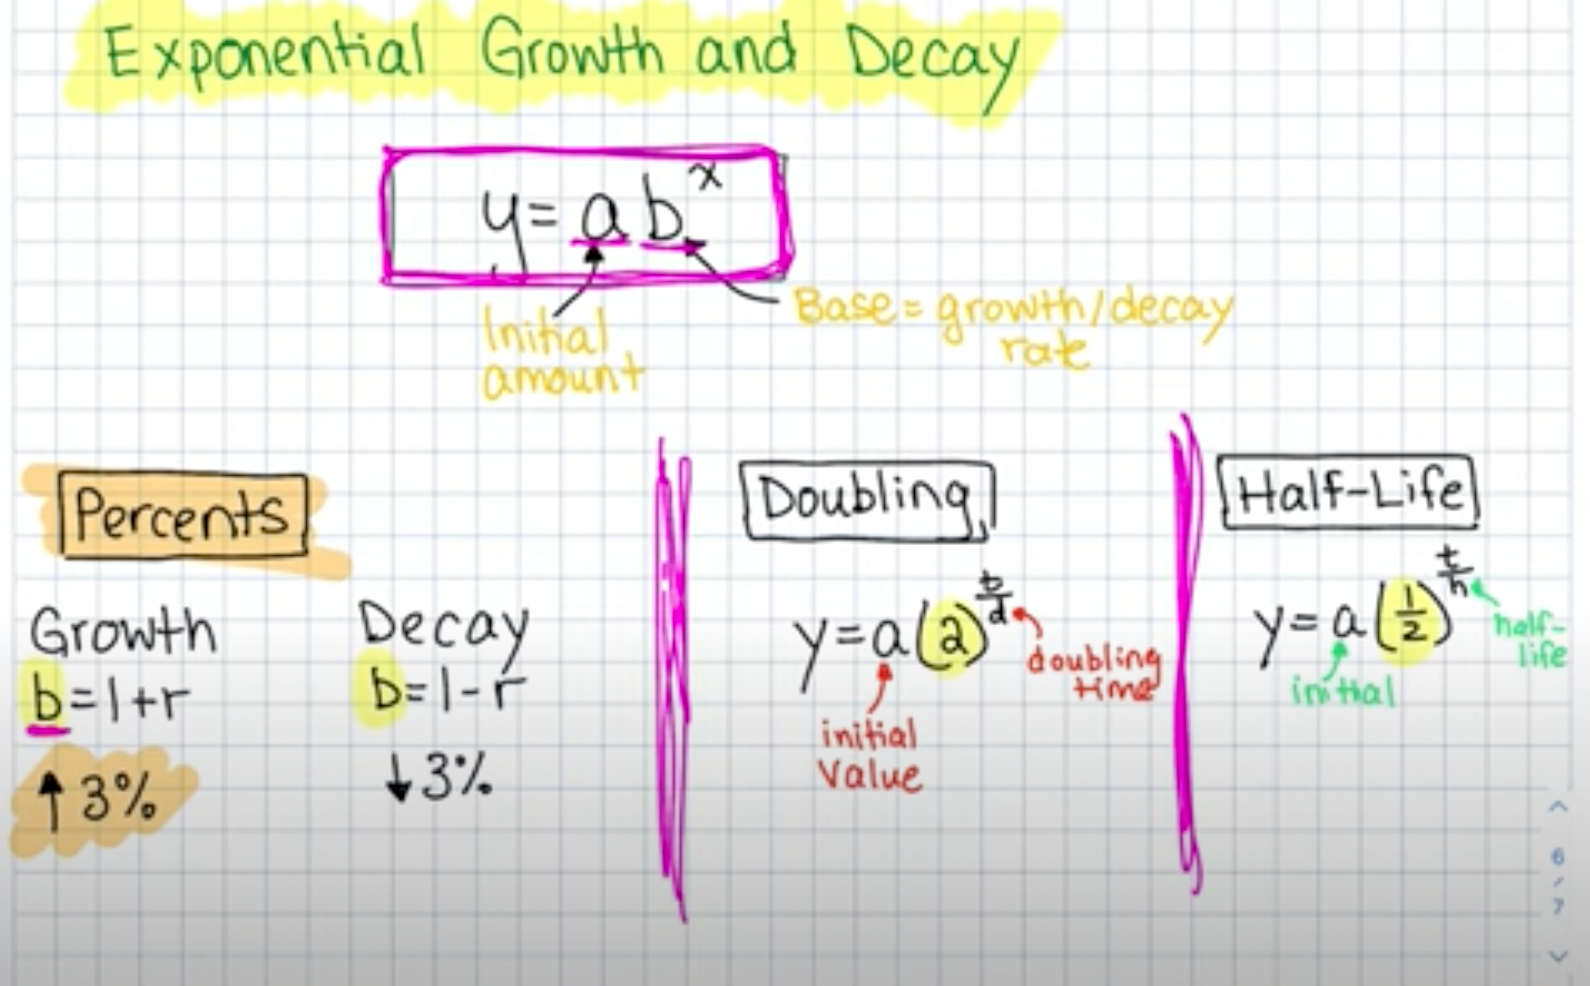 Exponential Growth and Decay
y = ab^x
Initial
amount
Base = growth/decay
rate
Percents
Growth
b = 1 + r
↑ 3%
Decay
b = 1 - r
↓ 3%
Doubling
y = a(2)^(t/d)
doubling
time
initial
value
Half-Life
y = a(1/2)^(t/h)
half-
life
initial
6
/
7